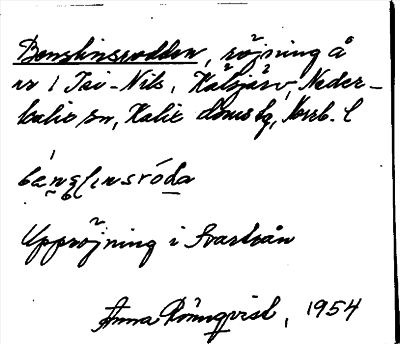 Benslinsrodden, röjning å
nr 1 Tai-Nils, Kalsjärv, Neder-
kalix sn, Kalix domsbg, Norrb. l
Uppröjning i Svartsån
Anna Rönnqvist, 1954